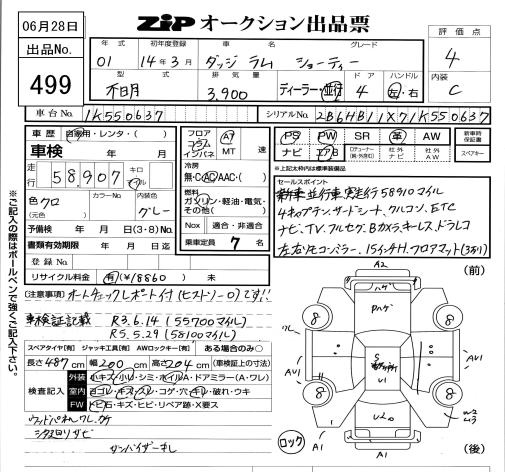 06月28日
ZIP オークション出品票
出品No. 499
年式 初年度登録 車名 グレード
01 14年3月 ダッジ ラム ショーティー
型式 排気量 ディーラー・並行 ドア ハンドル
不明 3,900 4 左・右
評価点 4
内装 C
車台No. 1K550637 シリアルNo. 2B6HB11X71K550637
車歴 自家用・レンタ・( )
車検 年 月 日
走行 58,907 キロ マイル
色 クロ (元色) カラーNo. 内装色 グレー
予備検 年 月 日(3・8)No.
書類有効期限 年 月 日迄
登録No.
リサイクル料金 有(¥18860) 未
フロア コラム インパネ AT MT 速
冷房 無・C・AC・AAC・( )
燃料 ガソリン・軽油・電気・その他( )
Nox 適合・非適合
乗車定員 7 名
PS PW SR 革 AW 新車時保証書
ナビ エアB 社外ナビ 社外AW スペアキー
※上記太枠内は標準装備品
セールスポイント
新車並行車実走行58910マイル
4キャプテン、サードシート、クルコン、ETC
ナビ、TV、フルセグ、Bカメラ、キーレス、ドラレコ
左右リモコンミラー、15インチH、フロアマット(3カ月)
※ご記入の際はボールペンで強くご記入下さい。
(注意事項) オートチェックレポート付(ヒストゾーロ)です!!
車検証記載 R3.6.14(55700マイル)
R5.5.29(58100マイル)
スペアタイヤ[有] ジャッキ工具[有] AWロックキー[有] ある場合のみ○
長さ 487cm 幅 200cm 高さ 204cm (車検証の寸法)
検査記入
外装 小キズ・小レ・シミ・ホイルA・ドアミラー(A・ワレ)
室内 ヨゴレ・キズ・スレ・コゲ・穴・キレ・破れ・ウキ
FW トビ石・キズ・ヒビ・リペア跡・X要ス
ウッドパネルワレ、カケ
シタ廻りサビ
サンバイザーキレ
ロック
(前)
A2
ハゲ
Pハゲ
8 8
ワレ
AU1 A1 AU1
S
U1
8 8
A1
W2
U3
A1
(後)